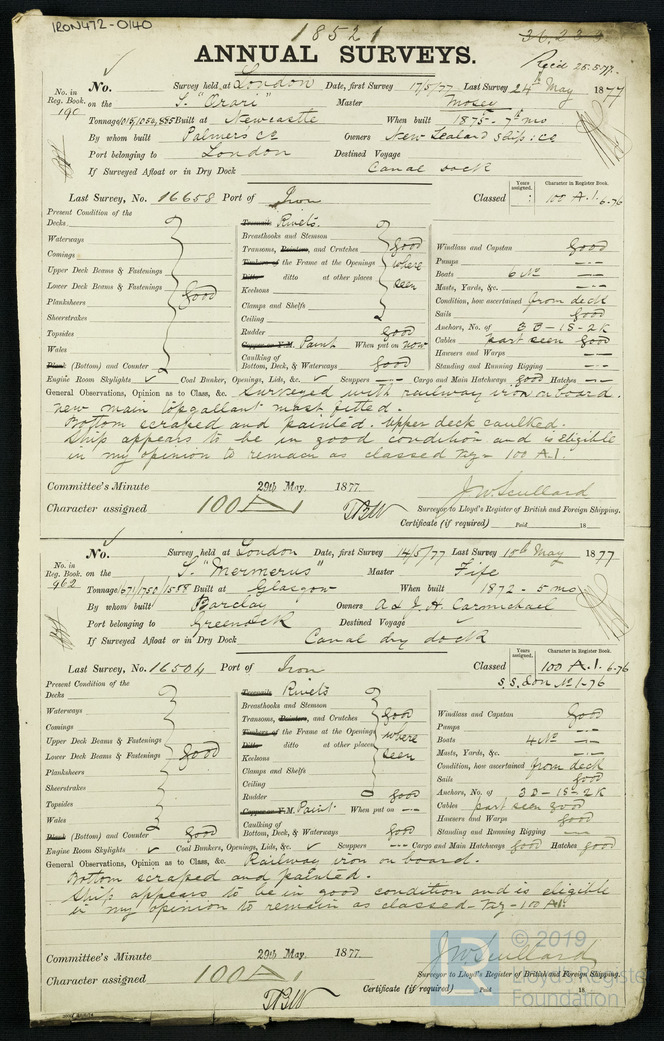 IRON472-0140
18521
36,239
ANNUAL SURVEYS.
Recd 25.5.77.
No. in Reg. Book. 190
No. Survey held at London Date, first Survey 17/5/77 Last Survey 24th May 1877
on the S. "Orari" Master Mosey
Tonnage 1015/1054,885 Built at Newcastle When built 1875 - 7th mo
By whom built Palmers Co Owners New Zealand Ship: Co
Port belonging to London Destined Voyage
If Surveyed Afloat or in Dry Dock Canal dock
Last Survey, No. 16658 Port of Iron Classed Years assigned. : Character in Register Book. 100 A.1. 6-76
Present Condition of the
Decks
Waterways
Comings
Upper Deck Beams & Fastenings
Lower Deck Beams & Fastenings good
Planksheers
Sheerstrakes
Topsides
Wales
Plank (Bottom) and Counter
Treenails Rivets.
Breasthooks and Stemson
Transoms, Pointers, and Crutches good
Timbers of the Frame at the Openings where
Ditto ditto at other places seen
Keelsons
Clamps and Shelfs
Ceiling
Rudder good
Copper or Y.M. Paint When put on now
Caulking of
Bottom, Deck, & Waterways good
Windlass and Capstan good
Pumps
Boats 6 No
Masts, Yards, &c.
Condition, how ascertained from deck
Sails good
Anchors, No. of 3B-1S-2K
Cables part seen good
Hawsers and Warps
Standing and Running Rigging
Engine Room Skylights Coal Bunker, Openings, Lids, &c. Scuppers Cargo and Main Hatchways good Hatches
General Observations, Opinion as to Class, &c. Surveyed with railway iron onboard.
new main topgallant mast fitted.
Bottom scraped and painted. upper deck caulked.
Ship appears to be in good condition and is eligible
in my opinion to remain as classed viz - 100 A.1.
Committee's Minute 29th May. 1877.
Character assigned 100 A 1
TBW
J W Scullard
Surveyor to Lloyd's Register of British and Foreign Shipping.
Certificate (if required) Paid 18
No. in Reg. Book. 962
No. Survey held at London Date, first Survey 14/5/77 Last Survey 15th May 1877
on the S. "Mermerus" Master Fife
Tonnage 1671/1750/1588 Built at Glasgow When built 1872 - 5 mo
By whom built Barclay Owners A & J. H. Carmichael
Port belonging to Greenock Destined Voyage
If Surveyed Afloat or in Dry Dock Canal dry dock
Last Survey, No. 16504 Port of Iron Classed Years assigned. Character in Register Book. 100 A.1. 6-76
S.S. Lon No 1-76
Present Condition of the
Decks
Waterways
Comings
Upper Deck Beams & Fastenings
Lower Deck Beams & Fastenings good
Planksheers
Sheerstrakes
Topsides
Wales
Plank (Bottom) and Counter good
Treenails Rivets
Breasthooks and Stemson
Transoms, Pointers, and Crutches good
Timbers of the Frame at the Openings where
Ditto ditto at other places seen
Keelsons
Clamps and Shelfs
Ceiling
Rudder good
Copper or Y.M. Paint When put on
Caulking of
Bottom, Deck, & Waterways good
Windlass and Capstan good
Pumps
Boats 4 No
Masts, Yards, &c.
Condition, how ascertained from deck
Sails good
Anchors, No. of 3B-1S-2K
Cables part seen good
Hawsers and Warps good
Standing and Running Rigging
Engine Room Skylights Coal Bunkers, Openings, Lids, &c. Scuppers Cargo and Main Hatchways good Hatches good
General Observations, Opinion as to Class, &c. Railway iron on board.
Bottom scraped and painted.
Ship appears to be in good condition and is eligible
in my opinion to remain as classed - viz - 100 A1.
Committee's Minute 29th May. 1877.
Character assigned 100 A 1
TBW
J W Scullard
Surveyor to Lloyd's Register of British and Foreign Shipping.
Certificate (if required) Paid 18
© 2019
Lloyd's Register
Foundation